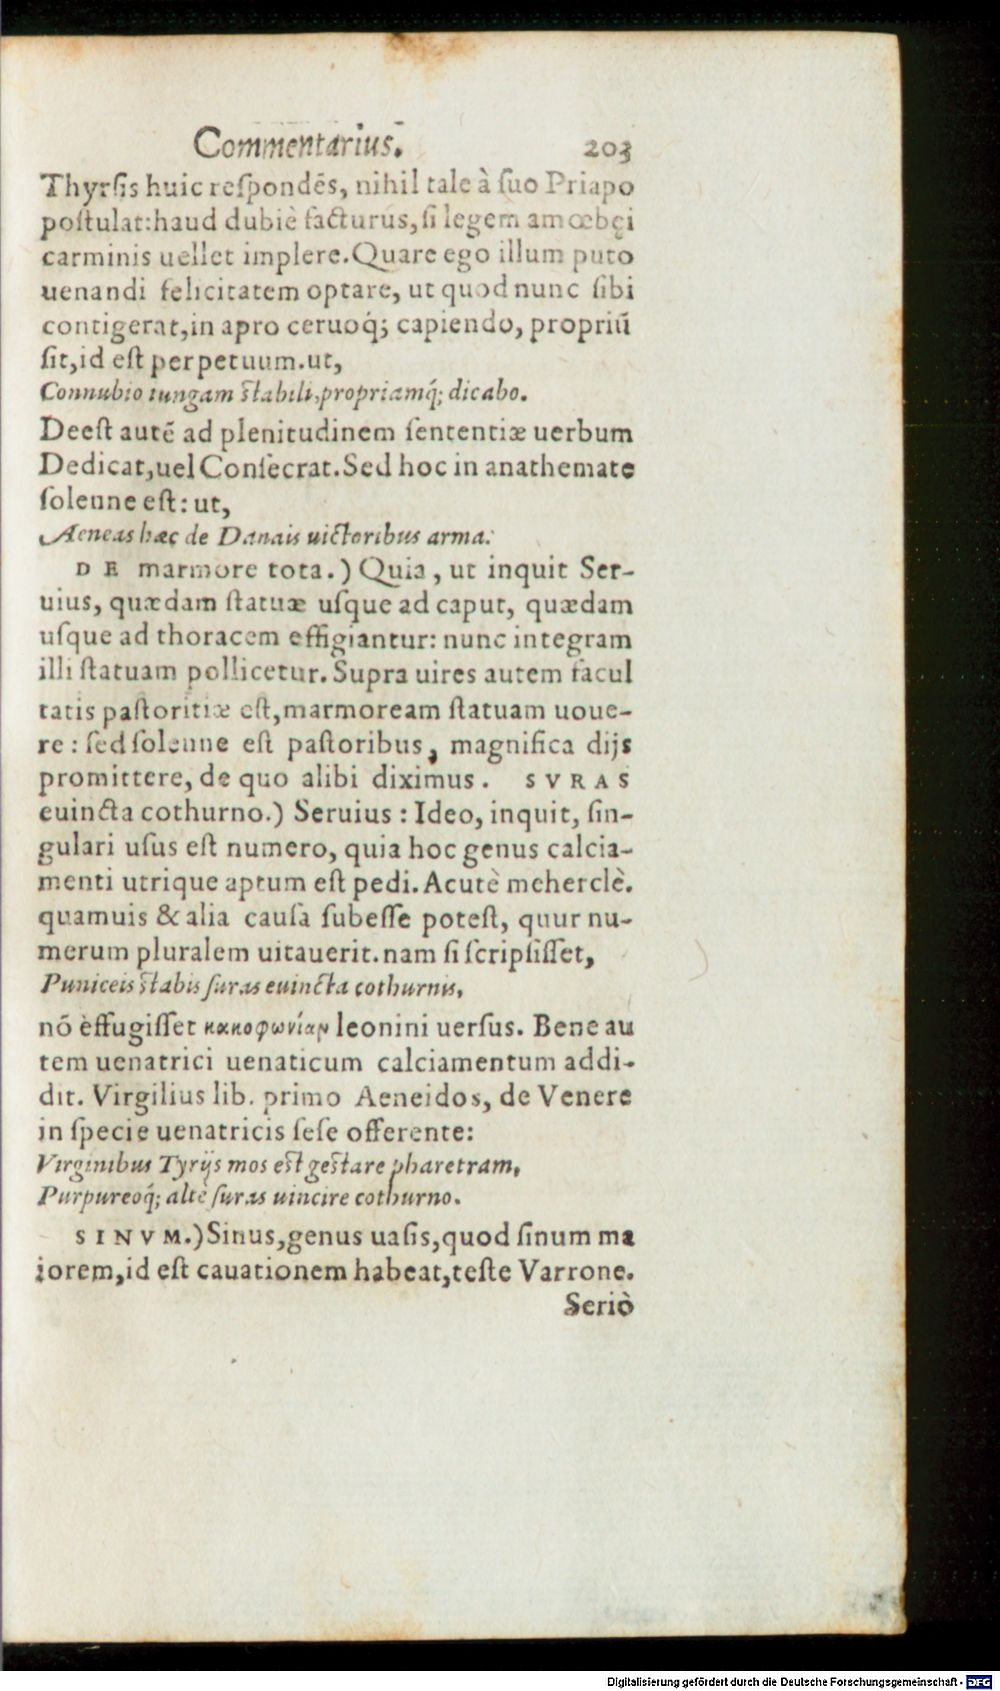 Commentarius. 203
Thyrsis huic respondēs, nihil tale à suo Priapo
postulat: haud dubiè facturus, si legem amœbęi
carminis uellet implere. Quare ego illum puto
uenandi felicitatem optare, ut quod nunc sibi
contigerat, in apro ceruoq́; capiendo, propriū
sit, id est perpetuum. ut,
Connubio iungam stabili, propriamq́; dicabo.
Deest autē ad plenitudinem sententiæ uerbum
Dedicat, uel Consecrat. Sed hoc in anathemate
solenne est: ut,
Aeneas hæc de Danais uictoribus arma.
DE marmore tota.) Quia, ut inquit Ser-
uius, quædam statuæ usque ad caput, quædam
usque ad thoracem effigiantur: nunc integram
illi statuam pollicetur. Supra uires autem facul
tatis pastoritiæ est, marmoream statuam uoue-
re: sed solenne est pastoribus, magnifica dijs
promittere, de quo alibi diximus. SVRAS
euincta cothurno.) Seruius: Ideo, inquit, sin-
gulari usus est numero, quia hoc genus calcia-
menti utrique aptum est pedi. Acutè meherclè.
quamuis & alia causa subesse potest, quur nu-
merum pluralem uitauerit. nam si scripsisset,
Puniceis stabis suras euincta cothurnis,
nō effugisset κακοφωνίαν leonini uersus. Bene au
tem uenatrici uenaticum calciamentum addi-
dit. Virgilius lib. primo Aeneidos, de Venere
in specie uenatricis sese offerente:
Virginibus Tyrijs mos est gestare pharetram,
Purpureoq́; altè suras uincire cothurno.
SINVM.) Sinus, genus uasis, quod sinum ma
iorem, id est cauationem habeat, teste Varrone.
Seriò
Digitalisierung gefördert durch die Deutsche Forschungsgemeinschaft - DFG